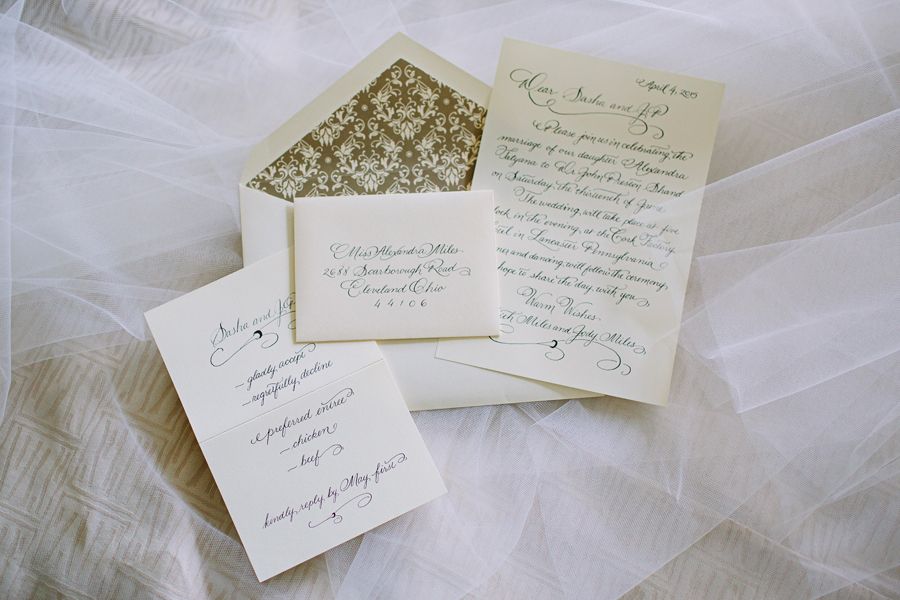 April 4, 2015
Dear Sasha and JP
Please join us in celebrating the
marriage of our daughter Alexandra
Tatyana to Dr. John Preston Shand
on Saturday, the thirteenth of June
The wedding, will take place at five
lock in the evening, at the Cork Factory
tel in Lancaster Pennsylvania
and dancing, will follow the ceremony
hope to share the day with you
Warm Wishes
Miles and Jody Miles
Miss Alexandra Miles
2688 Scarborough Road
Cleveland Ohio
44106
Sasha and JP
- gladly, accept
- regretfully, decline
preferred entrée
- chicken
- beef
kindly, reply, by, May, first